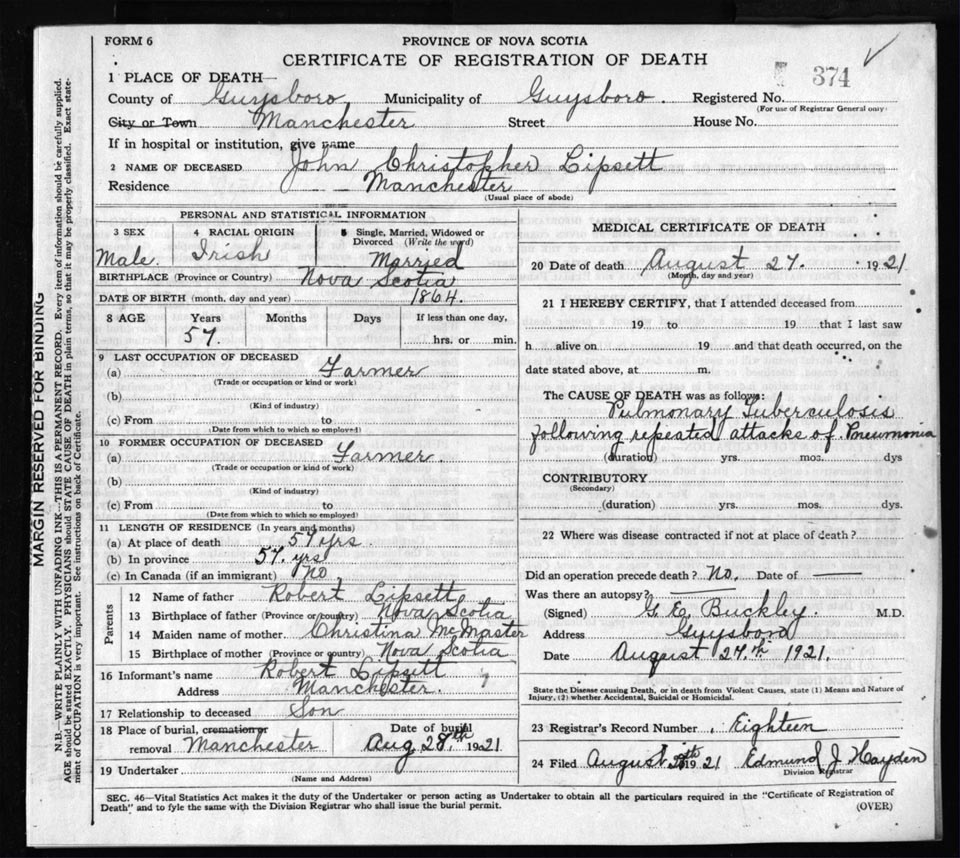 FORM 6
PROVINCE OF NOVA SCOTIA
CERTIFICATE OF REGISTRATION OF DEATH
1 PLACE OF DEATH—
374
County of Guysboro Municipality of Guysboro. Registered No.
(For use of Registrar General only)
City or Town Manchester Street House No.
If in hospital or institution, give name
2 NAME OF DECEASED John Christopher Lipsett
Residence Manchester
(Usual place of abode)
PERSONAL AND STATISTICAL INFORMATION
3 SEX Male. 4 RACIAL ORIGIN Irish 5 Single, Married, Widowed or Divorced (Write the word) Married
BIRTHPLACE (Province or Country) Nova Scotia
DATE OF BIRTH (month, day and year) 1864.
8 AGE Years Months Days If less than one day,
57. hrs. or min.
9 LAST OCCUPATION OF DECEASED
(a) Farmer
(Trade or occupation or kind or work)
(b)
(Kind of industry)
(c) From to
(Date from which to which so employed)
10 FORMER OCCUPATION OF DECEASED
(a) Farmer.
(Trade or occupation or kind of work)
(b)
(Kind of industry)
(c) From to
(Date from which to which so employed)
11 LENGTH OF RESIDENCE (In years and months)
(a) At place of death 57 yrs.
(b) In province 57. yrs.
(c) In Canada (if an immigrant) No
Parents
12 Name of father Robert Lipsett
13 Birthplace of father (Province or country) Nova Scotia
14 Maiden name of mother Christina McMaster
15 Birthplace of mother (Province or country) Nova Scotia
16 Informant's name Robert Lipsett
Address Manchester.
17 Relationship to deceased Son
18 Place of burial, cremation or removal Manchester Date of burial Aug 28th 1921
19 Undertaker
(Name and Address)
MEDICAL CERTIFICATE OF DEATH
20 Date of death August 27. 1921
(Month, day and year)
21 I HEREBY CERTIFY, that I attended deceased from
19 to 19 that I last saw
h alive on 19 and that death occurred, on the
date stated above, at m.
The CAUSE OF DEATH was as follows:
Pulmonary Tuberculosis
following repeated attacks of Pneumonia
(duration) yrs. mos. dys
CONTRIBUTORY
(Secondary)
(duration) yrs. mos. dys.
22 Where was disease contracted if not at place of death?
Did an operation precede death? No. Date of —
Was there an autopsy? —
(Signed) G. E. Buckley. M.D.
Address Guysboro
Date August 27.th 1921.
State the Disease causing Death, or in death from Violent Causes, state (1) Means and Nature of
Injury, (2) whether Accidental, Suicidal or Homicidal.
23 Registrar's Record Number Eighteen
24 Filed August 1921 Edmund J. Hayden
Division Registrar
SEC. 46—Vital Statistics Act makes it the duty of the Undertaker or person acting as Undertaker to obtain all the particulars required in the "Certificate of Registration of
Death" and to fyle the same with the Division Registrar who shall issue the burial permit.
(OVER)
MARGIN RESERVED FOR BINDING
N.B.—WRITE PLAINLY WITH UNFADING INK—THIS IS A PERMANENT RECORD. Every item of information should be carefully supplied.
AGE should be stated EXACTLY. PHYSICIANS should STATE CAUSE OF DEATH in plain terms, so that it may be properly classified. Exact state-
ment of OCCUPATION is very important. See instructions on back of Certificate.